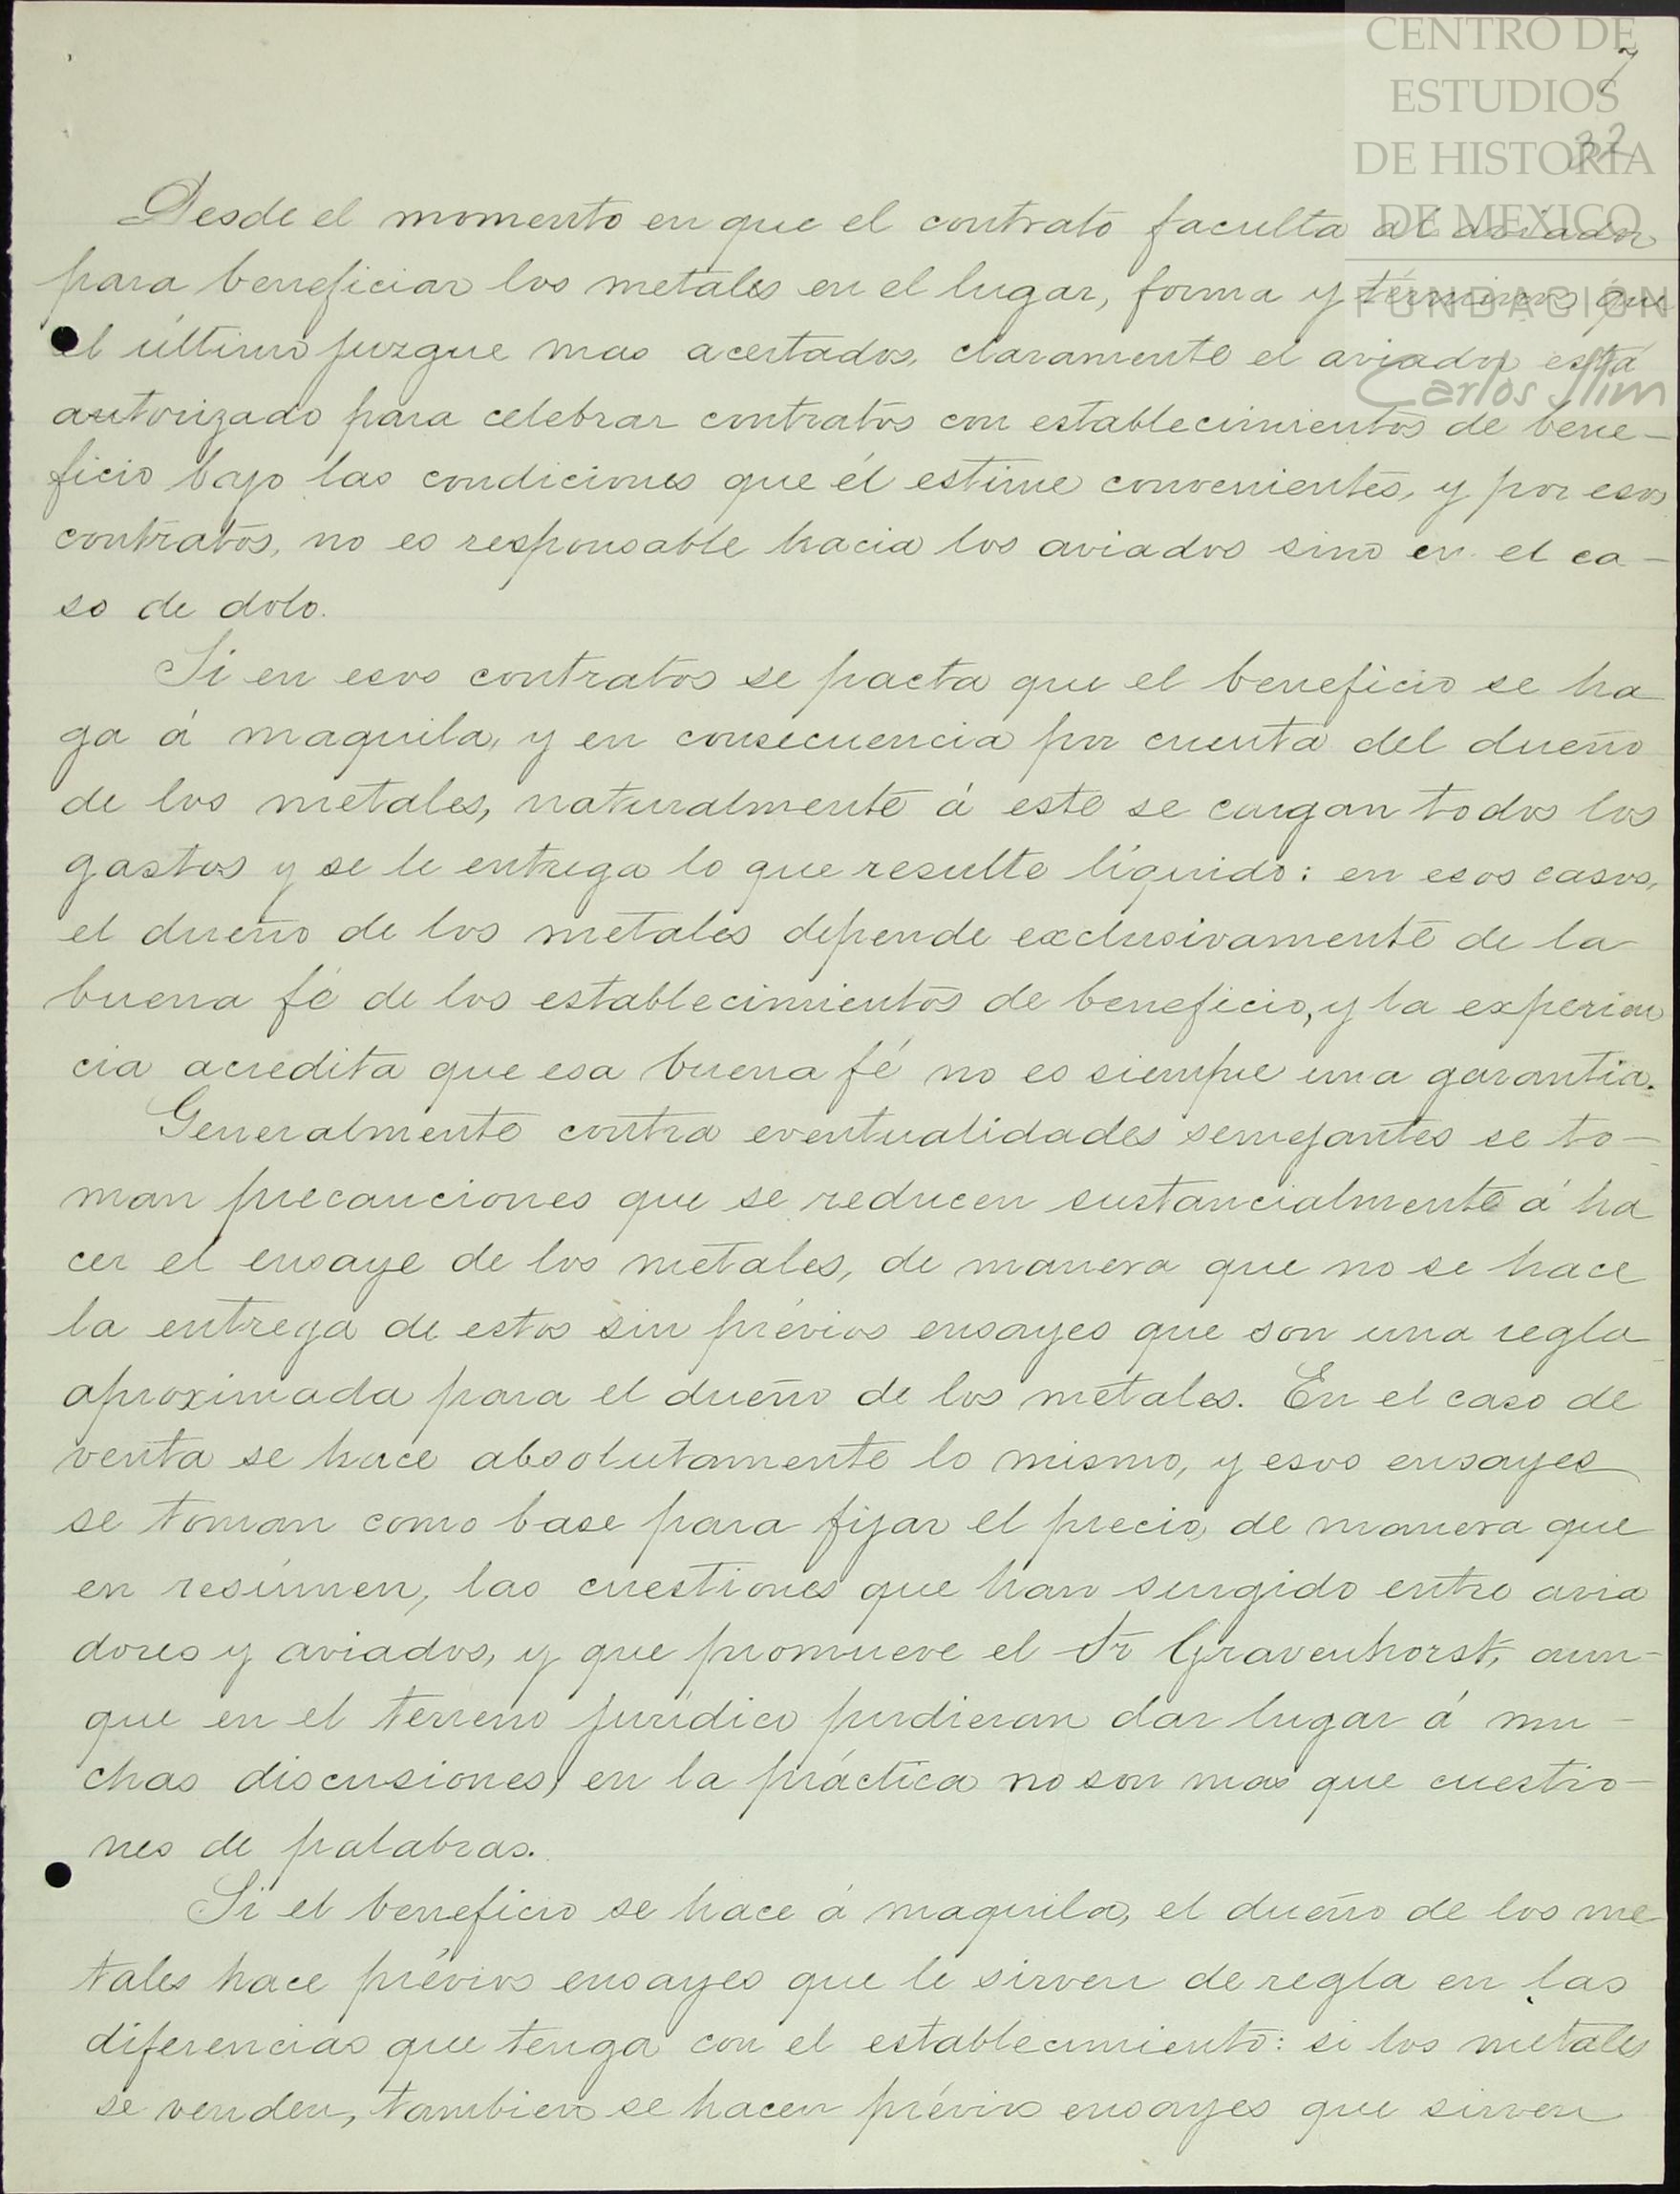 CENTRO DE
ESTUDIOS
DE HISTORIA
DE MEXICO
FUNDACIÓN
Carlos Slim
7
32
Desde el momento en que el contrato faculta al aviador
para beneficiar los metales en el lugar, forma y términos que
el último juzgue mas acertados, claramente el aviador está
autorizado para celebrar contratos con establecimientos de bene-
ficio bajo las condiciones que él estime convenientes, y por esos
contratos, no es responsable hacia los aviados sino en el ca-
so de dolo.
Si en esos contratos se pacta que el beneficio se ha
ga á maquila, y en consecuencia por cuenta del dueño
de los metales, naturalmente á este se cargan todos los
gastos y se le entrega lo que resulte líquido: en esos casos,
el dueño de los metales depende exclusivamente de la
buena fé de los establecimientos de beneficio, y la experien
cia acredita que esa buena fé no es siempre una garantia.
Generalmente contra eventualidades semejantes se to-
man precauciones que se reducen sustancialmente á ha
cer el ensaye de los metales, de manera que no se hace
la entrega de estos sin prévios ensayes que son una regla
aproximada para el dueño de los metales. En el caso de
venta se hace absolutamente lo mismo, y esos ensayes
se toman como base para fijar el precio, de manera que
en resúmen, las cuestiones que han surgido entre avia
dores y aviados, y que promueve el Sr Gravenhorst, aun-
que en el terreno jurídico pudieran dar lugar á mu-
chas discusiones, en la práctica no son mas que cuestio-
nes de palabras.
Si el beneficio se hace á maquila, el dueño de los me
tales hace prévios ensayes que le sirven de regla en las
diferencias que tenga con el establecimiento: si los metales
se venden, tambien se hacen prévios ensayes que sirven